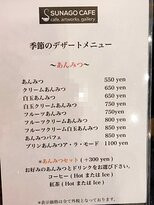 SUNAGO CAFE
cafe, artworks gallery
季節のデザートメニュー
～あんみつ～
あんみつ 550 yen
クリームあんみつ 650 yen
白玉あんみつ 650 yen
白玉クリームあんみつ 750 yen
フルーツあんみつ 750 yen
フルーツクリームあんみつ 800 yen
フルーツクリーム白玉あんみつ 900 yen
あんみつパフェ 850 yen
プリンあんみつア・ラ・モード 1100 yen
＊あんみつセット（＋300 yen）
お好みのあんみつとドリンクをお選び下さい。
コーヒー（Hot または Ice）
紅茶（Hot または Ice）